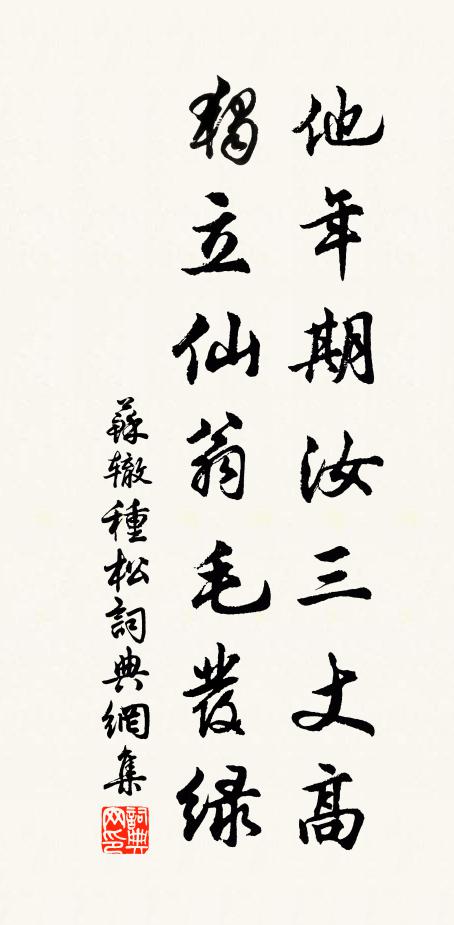 他年期汝三丈高
獨立仙翁毛發綠
蘇辙種松詞典網集
詞典网印